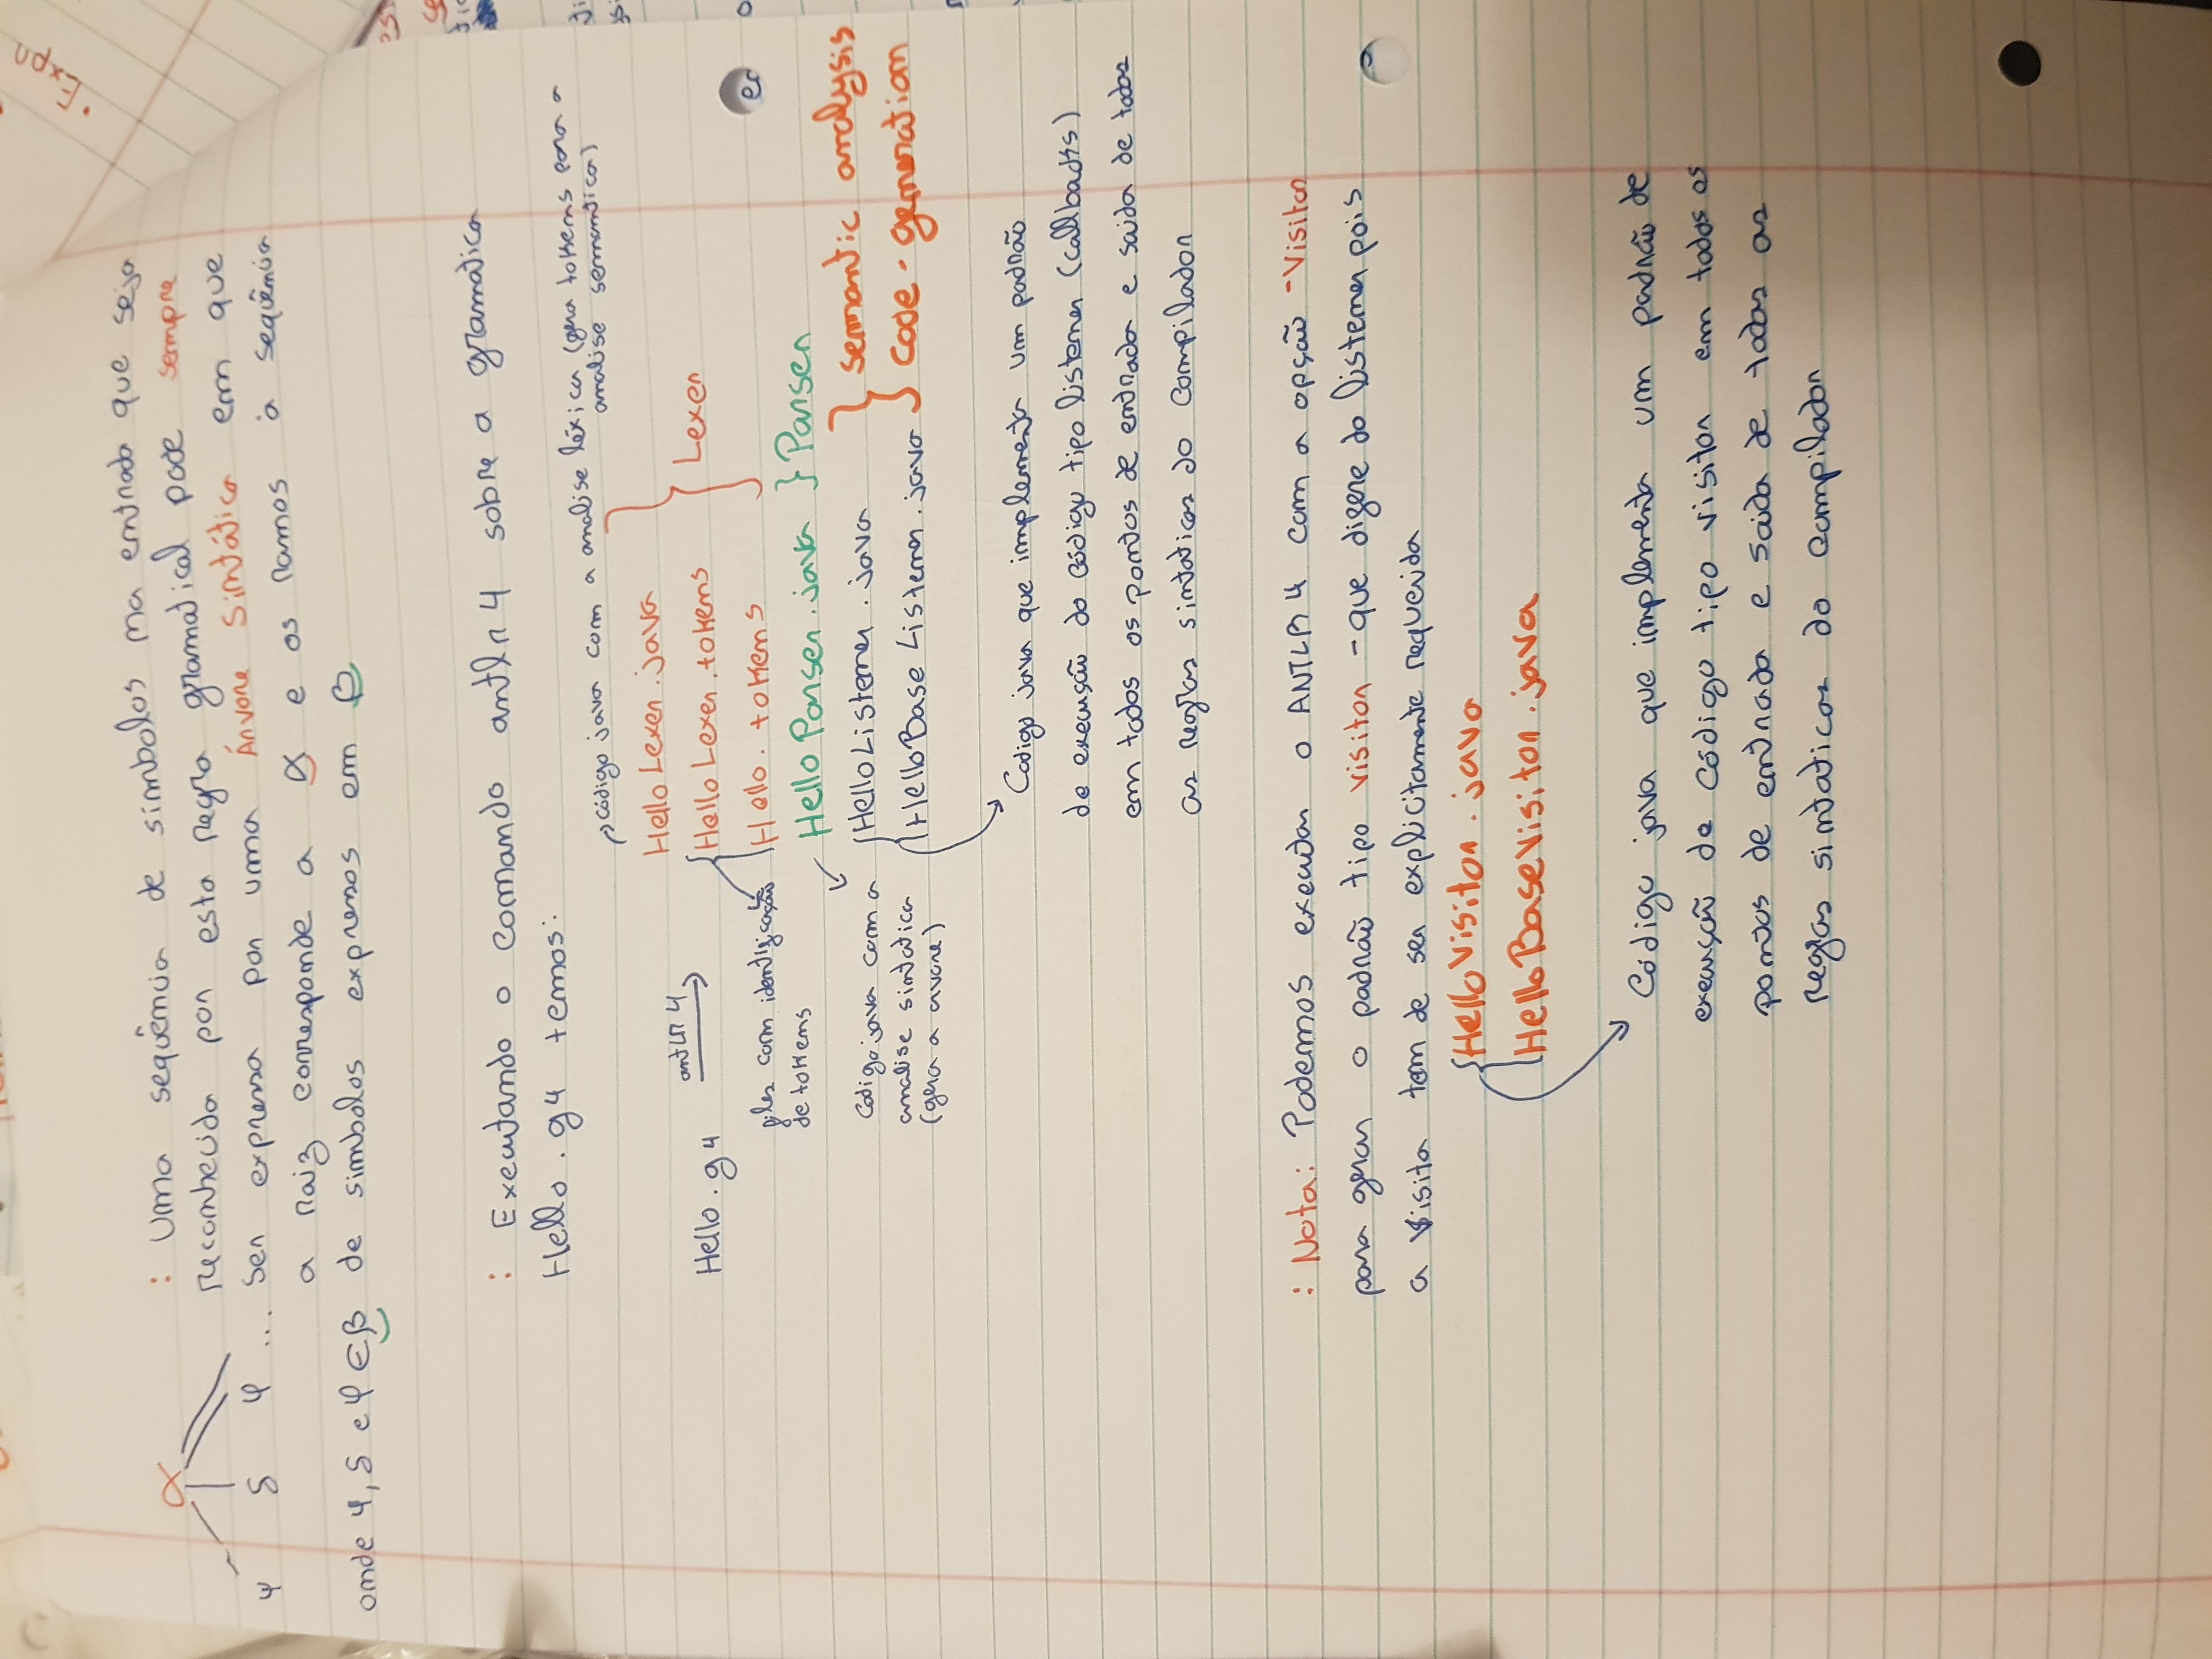 • Expr
α : Uma sequência de simbolos na entrada que seja
reconhecida por esta regra gramatical pode sempre
ψ δ φ ... ser expressa por uma Árvore Sintática em que
a raiz corresponde a α e os ramos à sequência
onde ψ, δ e φ ∈ β de simbolos expressos em β
: Executando o comando antlr4 sobre a gramatica
Hello.g4 temos:
código java com a analise léxica (gera tokens para a
analise semantica)
HelloLexer.java
Hello.g4 antlr4 HelloLexer.tokens } Lexer
files com identificação Hello.tokens
de tokens
HelloParser.java } Parser
Codigo java com a HelloListener.java } semantic analysis
analise sintatica HelloBaseListener.java code-generation
(gera a avore)
Codigo java que implementa um padrão
de execução do código tipo listener (callbacks)
em todos os pontos de entrada e saida de todas
as regras sintaticas do compilador
: Nota: Podemos executar o ANTLR4 com a opção -visitor
para gerar o padrão tipo visitor - que difere do listener pois
a visita tem de ser explicitamente requerida
HelloVisitor.java
HelloBaseVisitor.java
Código java que implementa um padrão de
execução de código tipo visitor em todos os
pontos de entrada e saida de todas as
regras sintaticas do compilador